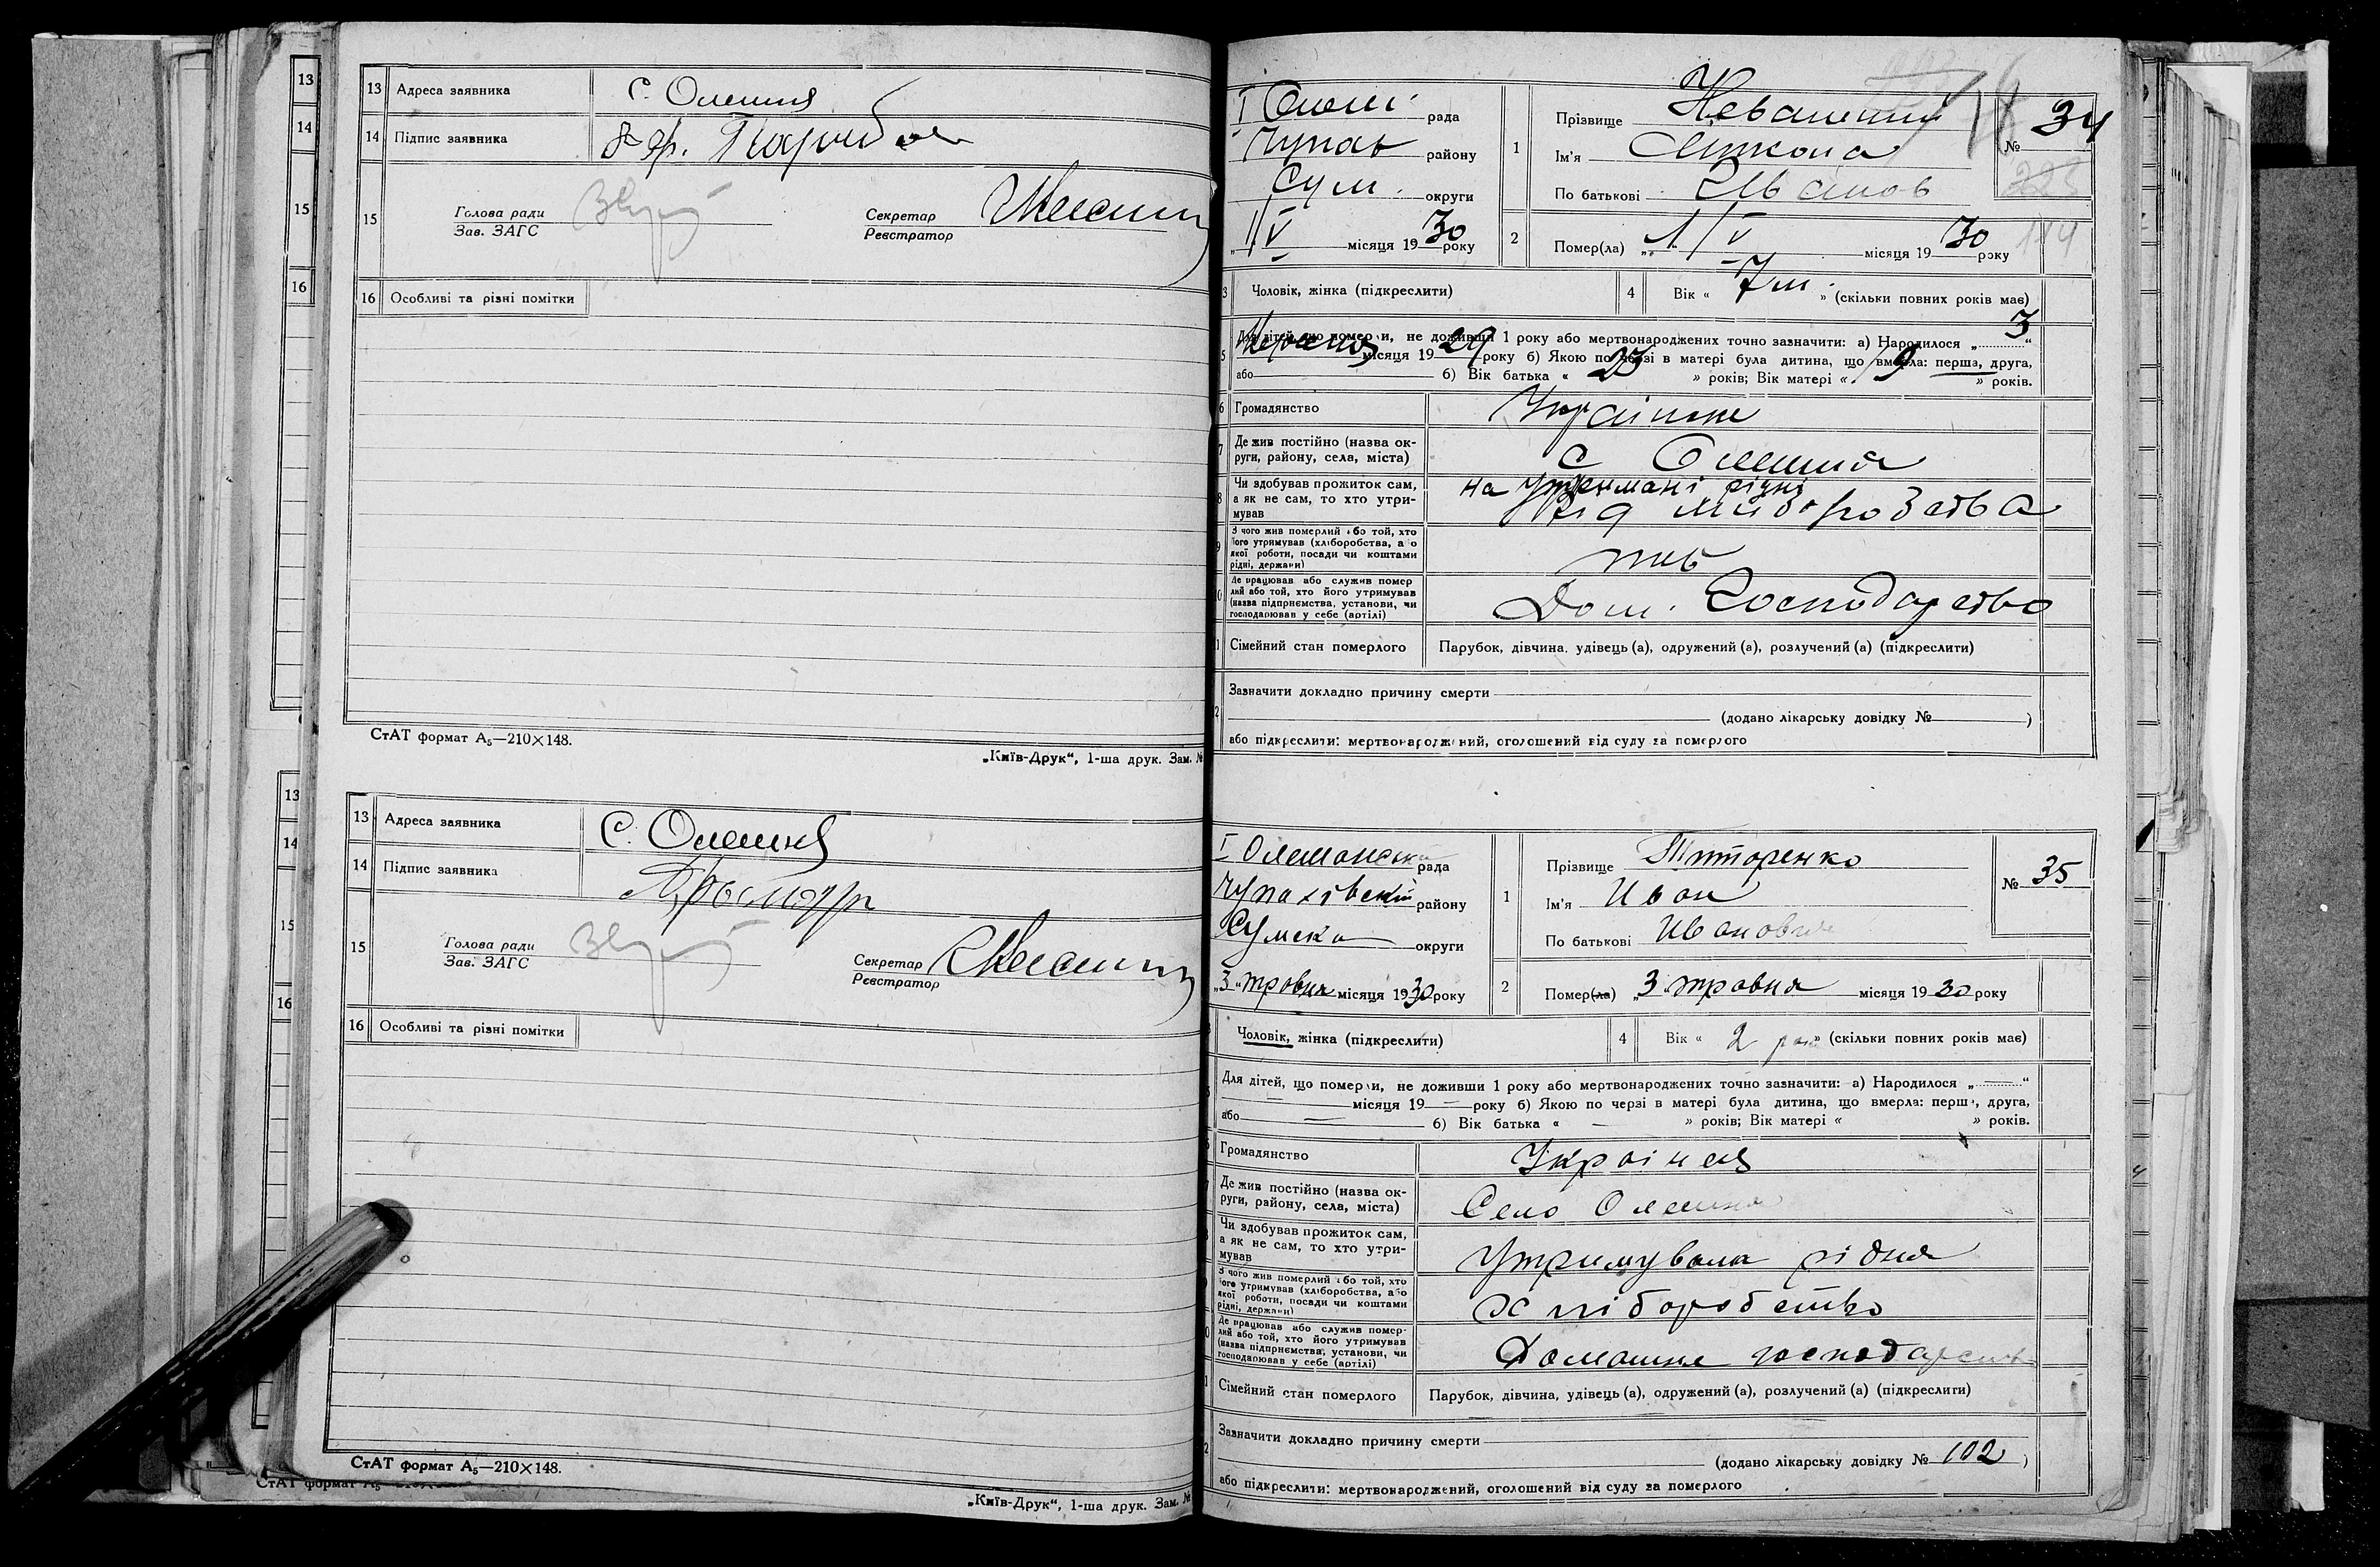 13 Адреса заявника с. Олешня
14 Підпис заявника
15 Голова ради
Зав. ЗАГС
Секретар
Реєстратор
16 Особливі та різні помітки
СтАТ формат А5—210×148.
„Київ-Друк“, 1-ша друк. Зам. №
13 Адреса заявника С. Олешня
14 Підпис заявника
15 Голова ради
Зав. ЗАГС
Секретар
Реєстратор
16 Особливі та різні помітки
СтАТ формат А5—210×148.
„Київ-Друк“, 1-ша друк. Зам. №
І Олеш. рада
Чупах района
Сум. округи
„1/V місяця 1930 року
1 Прізвище
Ім'я Микола
По батькові Иванов
№ 34
223
114
2 Помер(ла) „1/V місяця 1930 року
3 Чоловік, жінка (підкреслити)
4 Вік « 7 м. » (скільки повних років має)
5 Для дітей, що померли, не доживши 1 року або мертвонароджених точно зазначити: а) Народилося „3“
місяця 1929 року б) Якою по черзі в матері була дитина, що вмерла: перша, друга,
або б) Вік батька « 23 » років; Вік матері « 19 » років.
6 Громадянство
7 Де жив постійно (назва округи, району, села, міста) с Олешня
8 Чи здобував прожиток сам, а як не сам, то хто утримував на утримані рідні
9 З чого жив померлий або той, хто його утримував (хліборобства, або якої роботи, посади чи коштами рідні, держави)
10 Де працював або служив померлий або той, хто його утримував (назва підприємства, установи, чи господарював у себе (артілі) Дом. Господарство
11 Сімейний стан померлого Парубок, дівчина, удівець (а), одружений (а), розлучений (а) (підкреслити)
12 Зазначити докладно причину смерти
(додано лікарську довідку № )
або підкреслити: мертвонароджений, оголошений від суду за померлого
І Олешанська рада
Чупахівський району
Сумська округи
„3“ травня місяця 1930 року
1 Прізвище Титоренко
Ім'я Иван
По батькові Иванович
№ 35
2 Помер(ла) „3 травня місяця 1930 року
Чоловік, жінка (підкреслити)
4 Вік « 2 роки » (скільки повних років має)
Для дітей, що померли, не доживши 1 року або мертвонароджених точно зазначити: а) Народилося „ — “
— місяця 19 — року б) Якою по черзі в матері була дитина, що вмерла: перша, друга,
або — б) Вік батька « — » років; Вік матері « » років.
Громадянство
Де жив постійно (назва округи, району, села, міста) Село Олешня
Чи здобував прожиток сам, а як не сам, то хто утримував Утримувала рідня
З чого жив померлий або той, хто його утримував (хліборобства, або якої роботи, посади чи коштами рідні, держави) Хліборобство
Де працював або служив померлий або той, хто його утримував (назва підприємства, установи, чи господарював у себе (артілі) Домашнє господарств
Сімейний стан померлого Парубок, дівчина, удівець (а), одружений (а), розлучений (а) (підкреслити)
Зазначити докладно причину смерти
(додано лікарську довідку № 102 )
або підкреслити: мертвонароджений, оголошений від суду за померлого